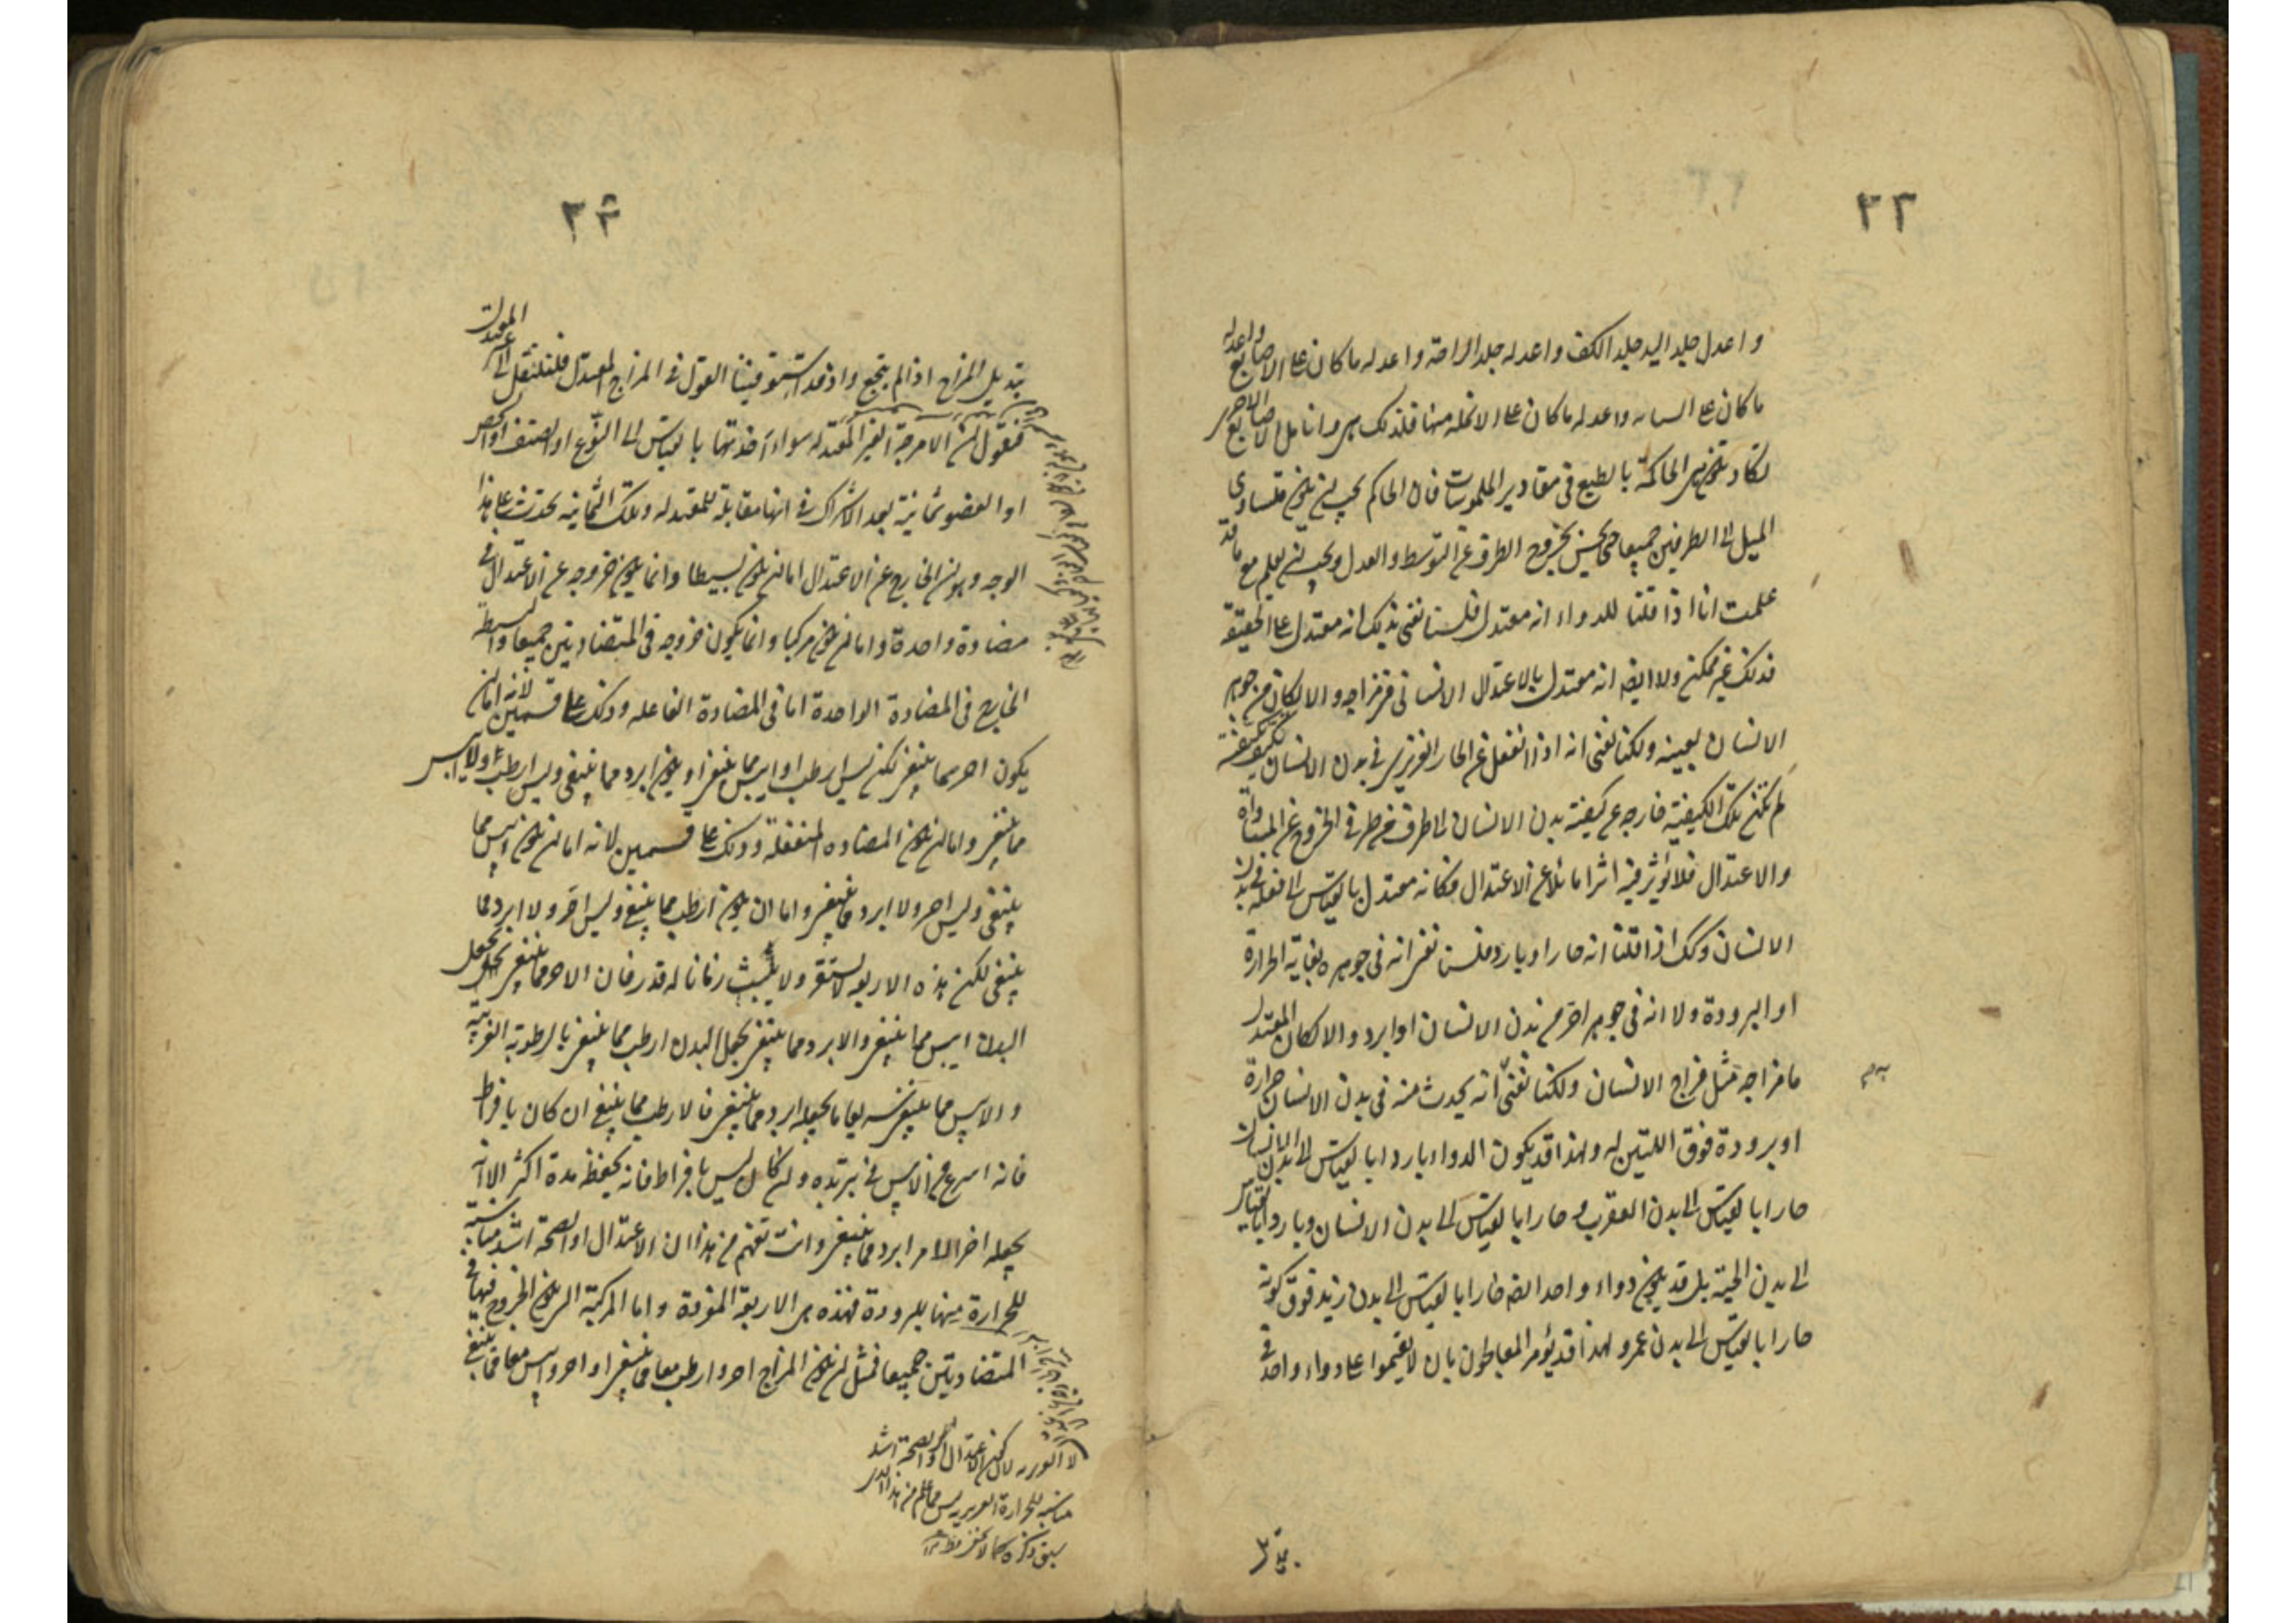 ٢٣
واعدل جلد اليد جلد الكف واعدله جلد الراحة واعدله ما كان على الاصابع واعدله
ما كان على السبابه واعدله ما كان على الانمله منها فلذلك هى وانامل الاصابع الاخر
تكاد تكون هى الحاكمة بالطبع فى مقادير الملموسات فان الحاكم يجب ان يكون متساوى
الميل الى الطرفين جميعا حتى يحس بخروج الطرف عن التوسط والعدل ويجب ان يعلم مع ما قد
علمت انا اذا قلنا للدواء انه معتدل فلسنا نعنى بذلك انه معتدل على الحقيقة
فذلك غير ممكن ولا ايضا انه معتدل بالاعتدال الانسانى فى مزاجه والا لكان من جوهر
الانسان بعينه ولكنا نعنى انه اذا انفعل عن الحار الغريزى فى بدن الانسان فتكيف بكيفية
لم تكن تلك الكيفية خارجة عن كيفية بدن الانسان الى طرف من طرفى الخروج عن المساواة
والاعتدال فلا يؤثر فيه اثرا مائلا عن الاعتدال فكانه معتدل بالقياس الى فعله فى بدن
الانسان وكذلك اذا قلنا انه حار او بارد فلسنا نعنى انه فى جوهره بغاية الحرارة
او البرودة ولا انه فى جوهره احر من بدن الانسان او ابرد والا لكان المعتدل
ما مزاجه مثل مزاج الانسان ولكنا نعنى انه يحدث منه فى بدن الانسان حرارة
او برودة فوق اللتين له ولهذا قد يكون الدواء باردا بالقياس الى بدن الانسان
حارا بالقياس الى بدن العقرب وحارا بالقياس الى بدن الانسان وباردا بالقياس
الى بدن الحية بل قد يكون دواء واحد ايضا حارا بالقياس الى بدن زيد فوق كونه
حارا بالقياس الى بدن عمرو لهذا قد يؤمر المعالجون بان لا يقيموا على دواء واحد فى
تبديل
٢٤
تبديل المزاج اذا لم ينجع واذ قد استوفينا القول فى المزاج المعتدل فلننتقل الى غير المعتدل
فنقول ان الامزجة الغير المعتدله سواء اخذتها بالقياس الى النوع او الصنف او الشخص
او العضو ثمانية بعد الاشتراك فى انها مقابلة للمعتدله وتلك الثمانيه تحدث على هذا
الوجه وهو ان الخارج عن الاعتدال اما ان يكون بسيطا وانما يكون خروجه عن الاعتدال فى
مضادة واحدة واما ان يكون مركبا وانما يكون خروجه فى المتضادتين جميعا والبسيط
الخارج فى المضادة الواحدة اما فى المضادة الفاعله وذلك على قسمين لانه اما ان
يكون احر مما ينبغى لكن ليس ارطب او ايبس مما ينبغى او يكون ابرد مما ينبغى وليس ارطب ولا ايبس
مما ينبغى واما ان يكون المضاده المنفعلة وذلك على قسمين لانه اما ان يكون ايبس مما
ينبغى وليس احر ولا ابرد مما ينبغى واما ان يكون ارطب مما ينبغى وليس احر ولا ابرد مما
ينبغى لكن هذه الاربعه لا تستقر ولا تثبت زمانا له قدر فان الاحر مما ينبغى يجعل
البدن ايبس مما ينبغى والابرد مما ينبغى يجعل البدن ارطب مما ينبغى بالرطوبة الغريبه
والايبس مما ينبغى سريعا ما يجعله ابرد مما ينبغى فالارطب مما ينبغى ان كان بافراط
فانه اسرع من الايبس فى تبريده وان كان ليس بافراط فانه يحفظه مدة اكثر الا انه
يجعله اخر الامر ابرد مما ينبغى وانت تفهم من هذا ان الاعتدال او الصحة اشد مناسبة
للحرارة منها للبرودة فهذه هى الاربعة المفردة واما المركبة التى يكون الخروج فيها فى
المتضادتين جميعا فمثل ان يكون المزاج احر وارطب معا مما ينبغى او احر وايبس معا مما ينبغى